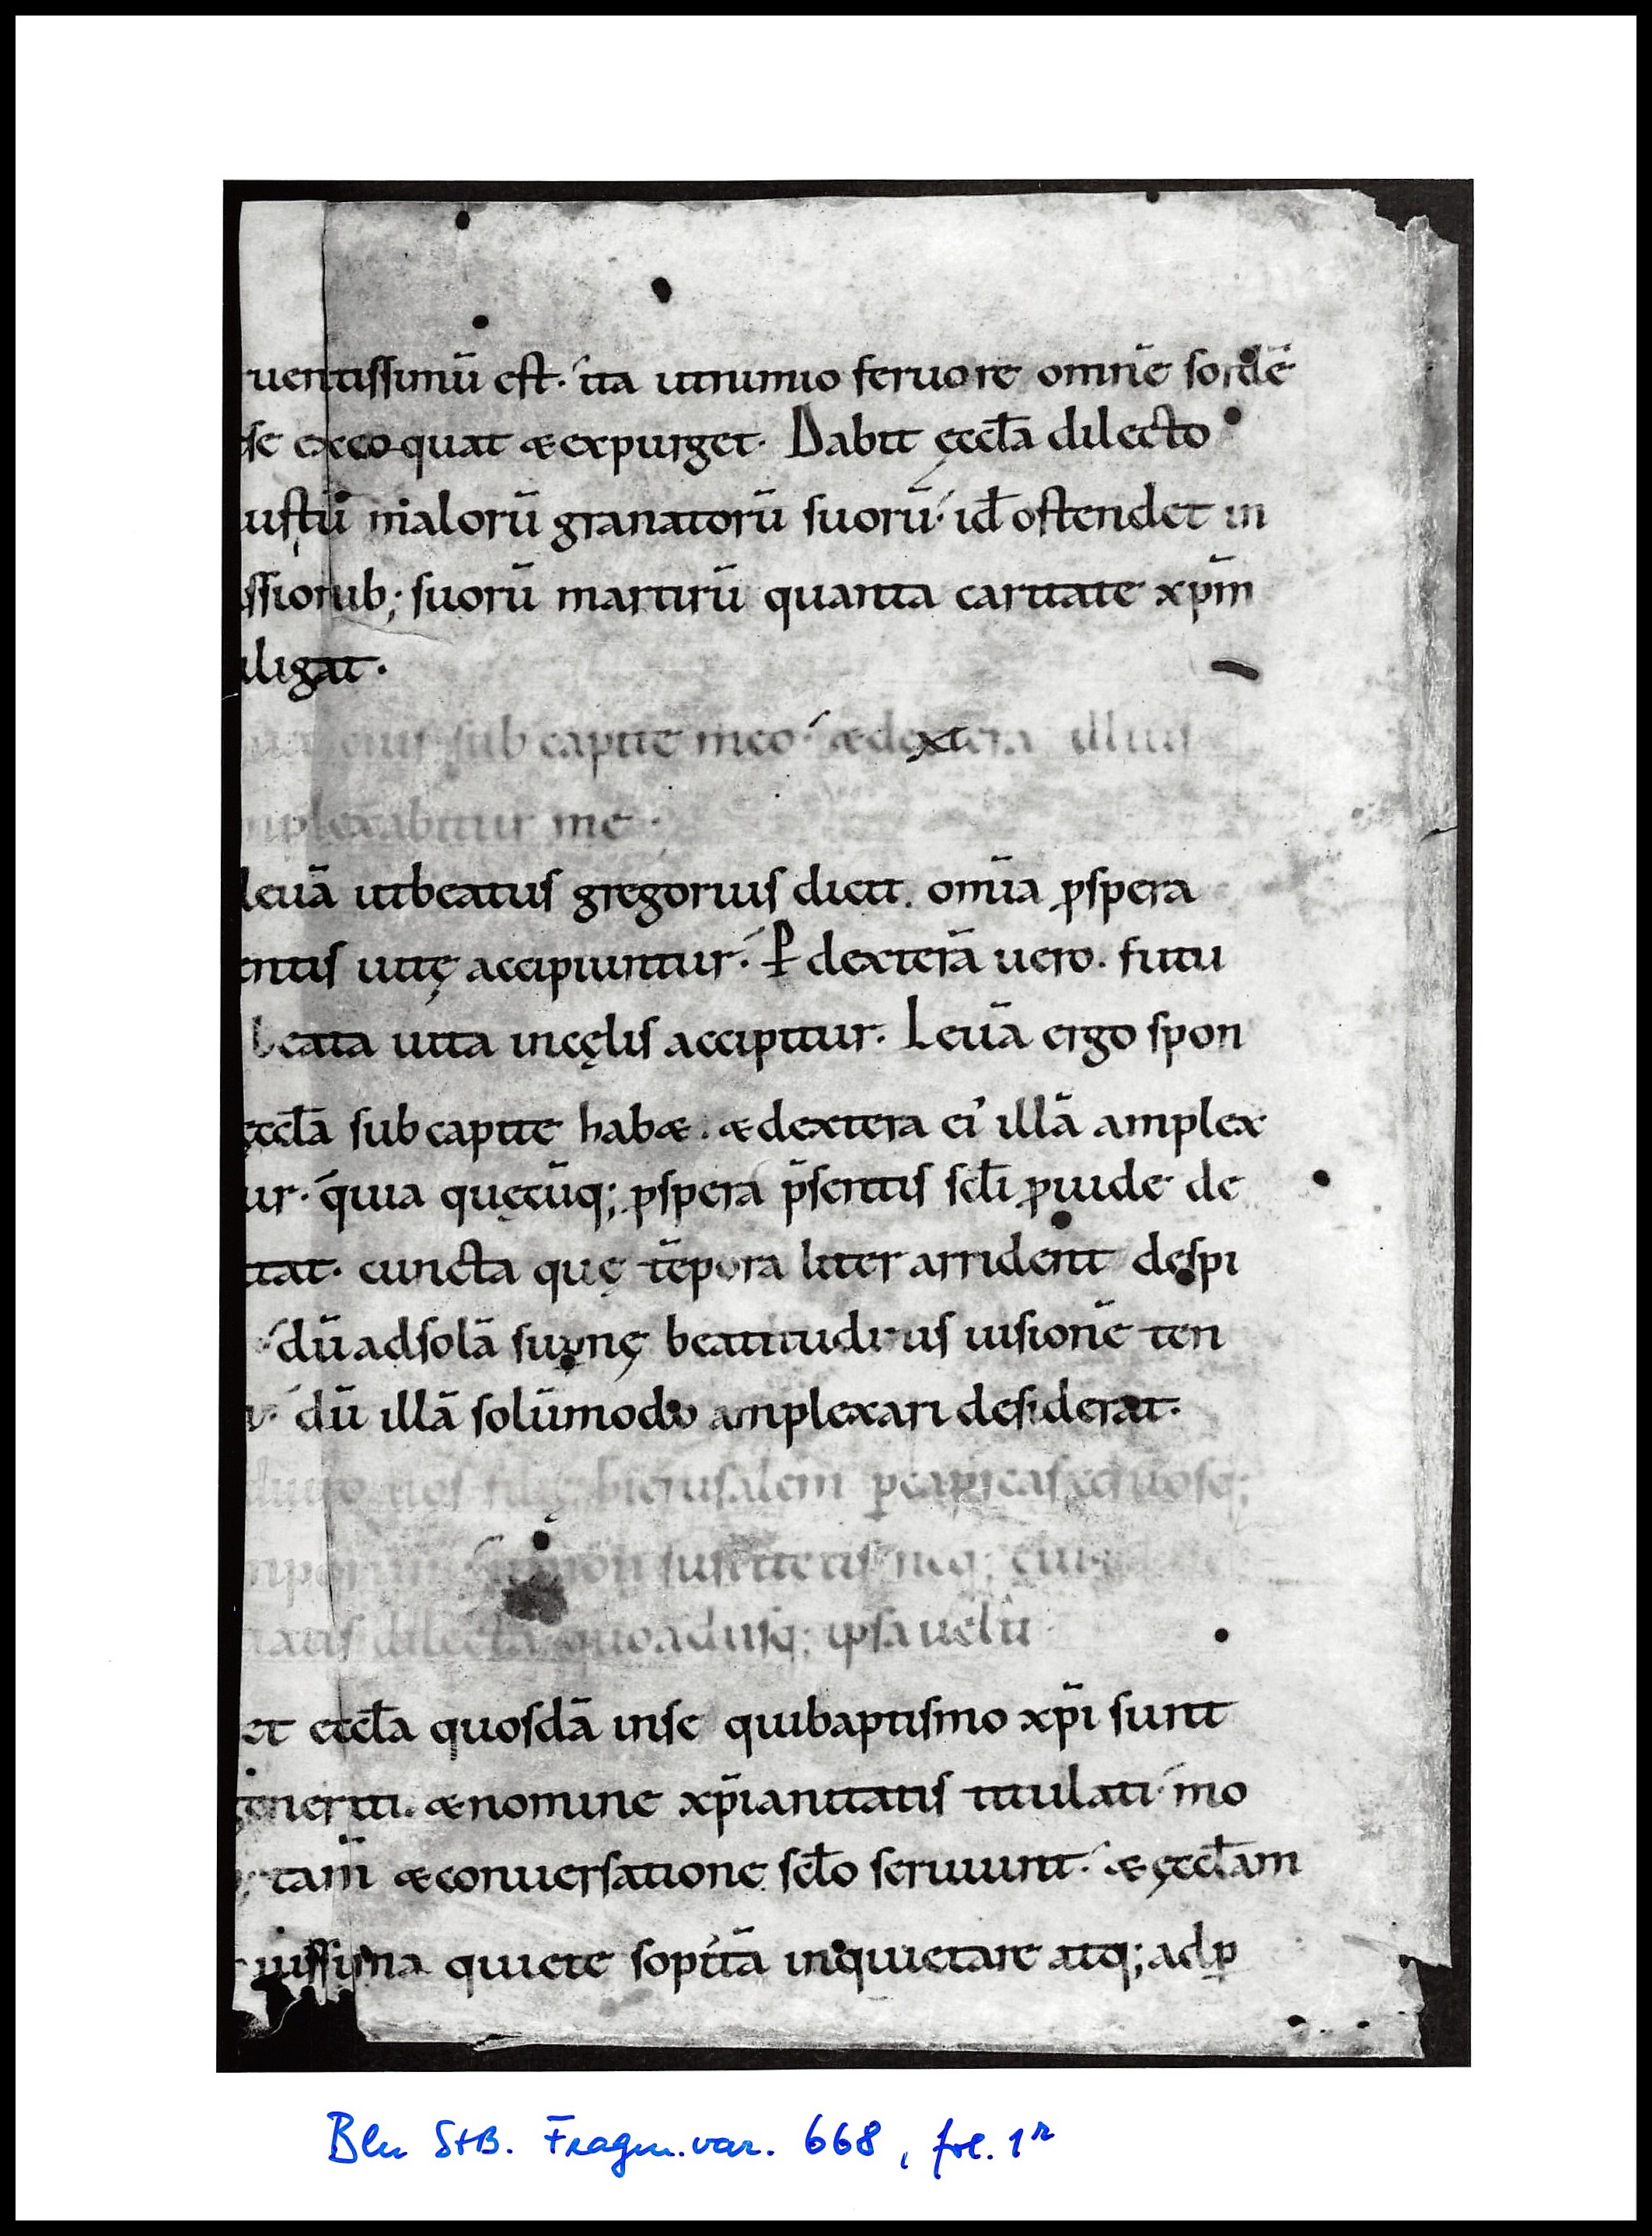 uentissimū est· ita utnimio feruore omnē sordē
se excoquat &expurget· Dabit ęccła dilecto
ustū malorū granatorū suorū· id̄ ostendet in
ssionib; suorū martirū quanta caritate xp̄m
iligat·
eius sub capite meo· &dextera illius
mplexabitur me·
leuā utbeatus gregorius dicit. om̄ia ꝓspera
entis uitę accipiuntur· ꝑ dexterā uero· futu
beata uita incęlis accipitur· Leuā ergo spon
ęccła sub capite hab&· &dextera ei' illā amplex
ur· quia quęcūq; ꝓspera p̄sentis scłi ꝓuide de
itat· cuncta quę tēpora liter arrident despi
dū adsolā supnę beatitudinis uisionē ten
dū illā solūmodo amplexari desiderat·
adiuro uos filię hierusalem ꝑcapreas ceruosq;
mporum non suscitetis neq; eui
ilaxitis dilectā quoadusq; ipsa uelit
et eccła quosdā inse quibaptismo xp̄i sunt
generati· &nomine xp̄ianitatis titulati· mo
tam̄ &conuersatione scło seruiunt· &ęccłam
uissima quiete sopitā inquietare atq; adꝑ
Bln StB. Fragm. var. 668, fol. 1r